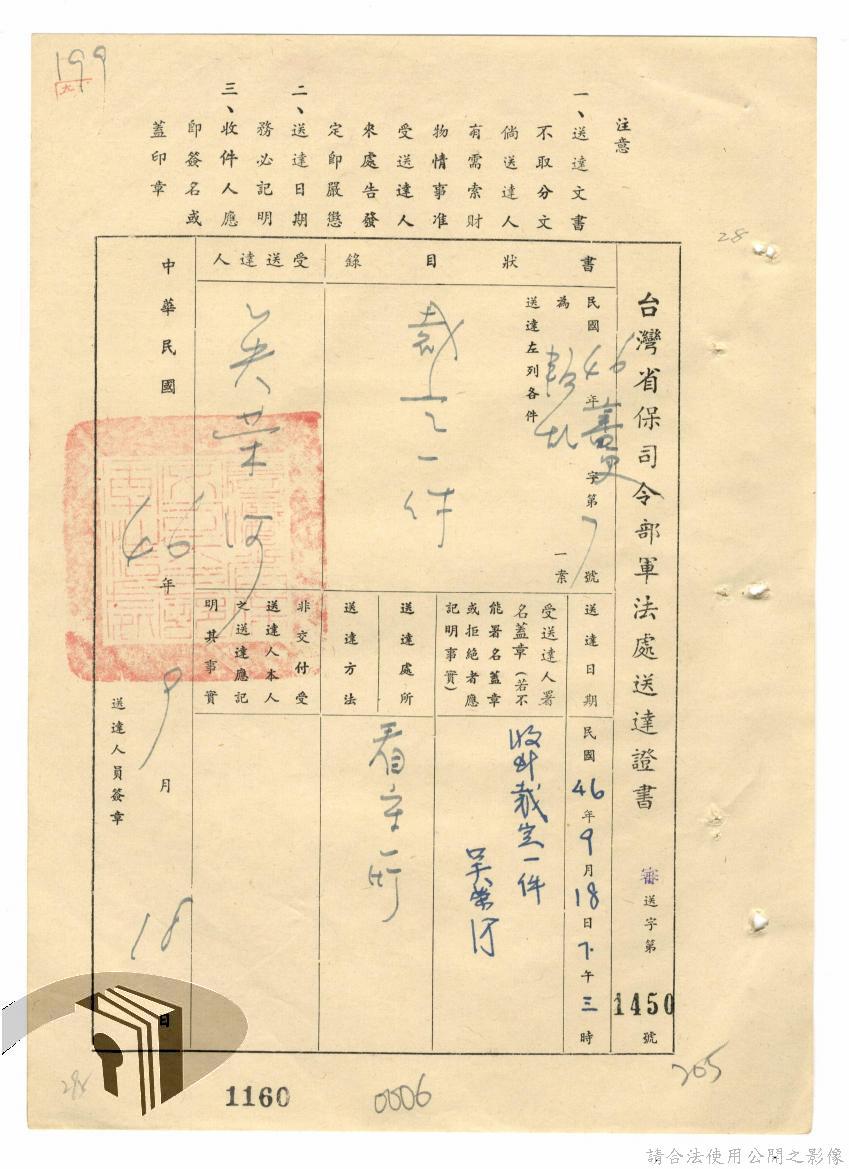 199
九
注意
一、送達文書
不取分文
倘送達人
有需索財
物情事准
受送達人
來處告發
定即嚴懲
二、送達日期
務必記明
三、收件人應
即簽名或
蓋印章
28
台灣省保司令部軍法處送達證書
審送字第1450號
書狀目錄
民國46年審更字第7號
為叛亂一案
送達左列各件
裁定一件
受送達人
吳榮河
送達日期
民國46年9月18日下午三時
受送達人署
名蓋章(若不
能署名蓋章
或拒絕者應
記明事實)
收到裁定一件
吳榮河
送達處所
看守所
送達方法
非交付受
送達人本人
之送達應記
明其事實
中華民國46年9月18日
送達人員簽章
1160
0006
205
請合法使用公開之影像